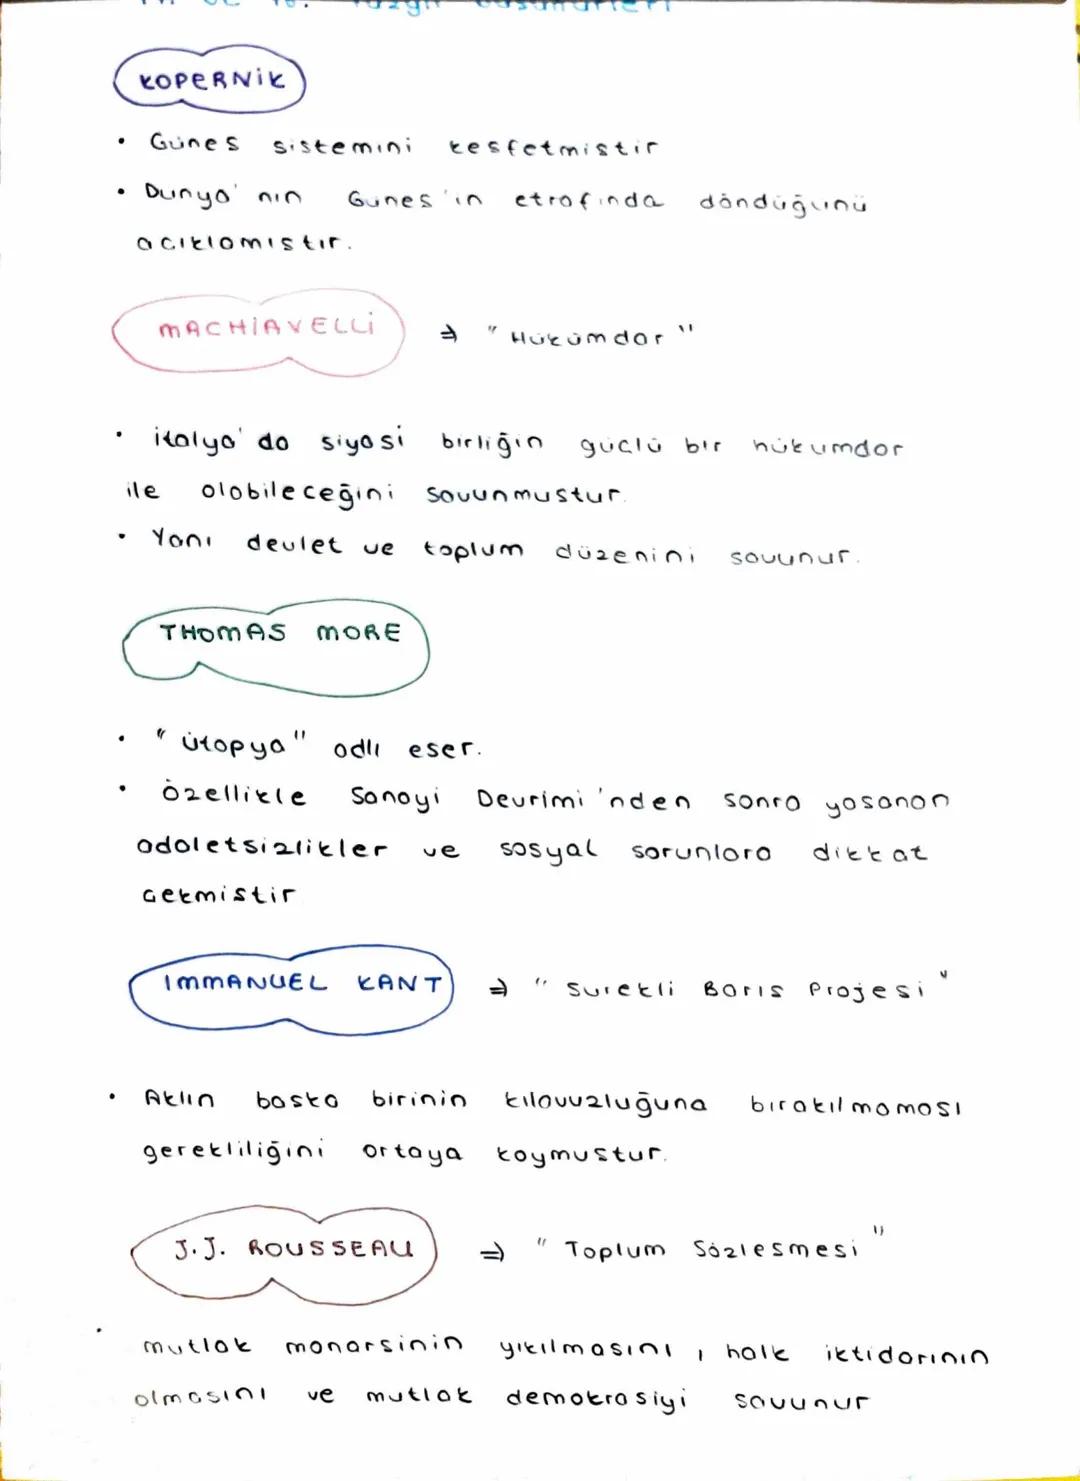 KOPERNİK
• Günes sistemini kesfetmistir
• Dunya'nın Gunes'in etrafında döndüğünü
acıklamıstır.
MACHİAVELLİ ⇒ "Hükümdar"
• italya'da siyasi birliğin güclü bir hükumdar
ile olabileceğini savunmustur.
• Yani devlet ve toplum düzenini savunur.
THOMAS MORE
• "ütopya" adlı eser.
• Özellikle Sanayi Devrimi'nden sonra yasanan
adaletsizlikler ve sosyal sorunlara dikkat
cekmistir
IMMANUEL KANT ⇒ "Surekli Barıs Projesi"
• Aklın baska birinin kılavuzluğuna bırakılmaması
gerekliliğini ortaya koymustur.
J.J. ROUSSEAU ⇒ "Toplum Sözlesmesi"
• mutlak monarsinin yıkılmasını, halk iktidarının
olmasını ve mutlak demokrasiyi savunur